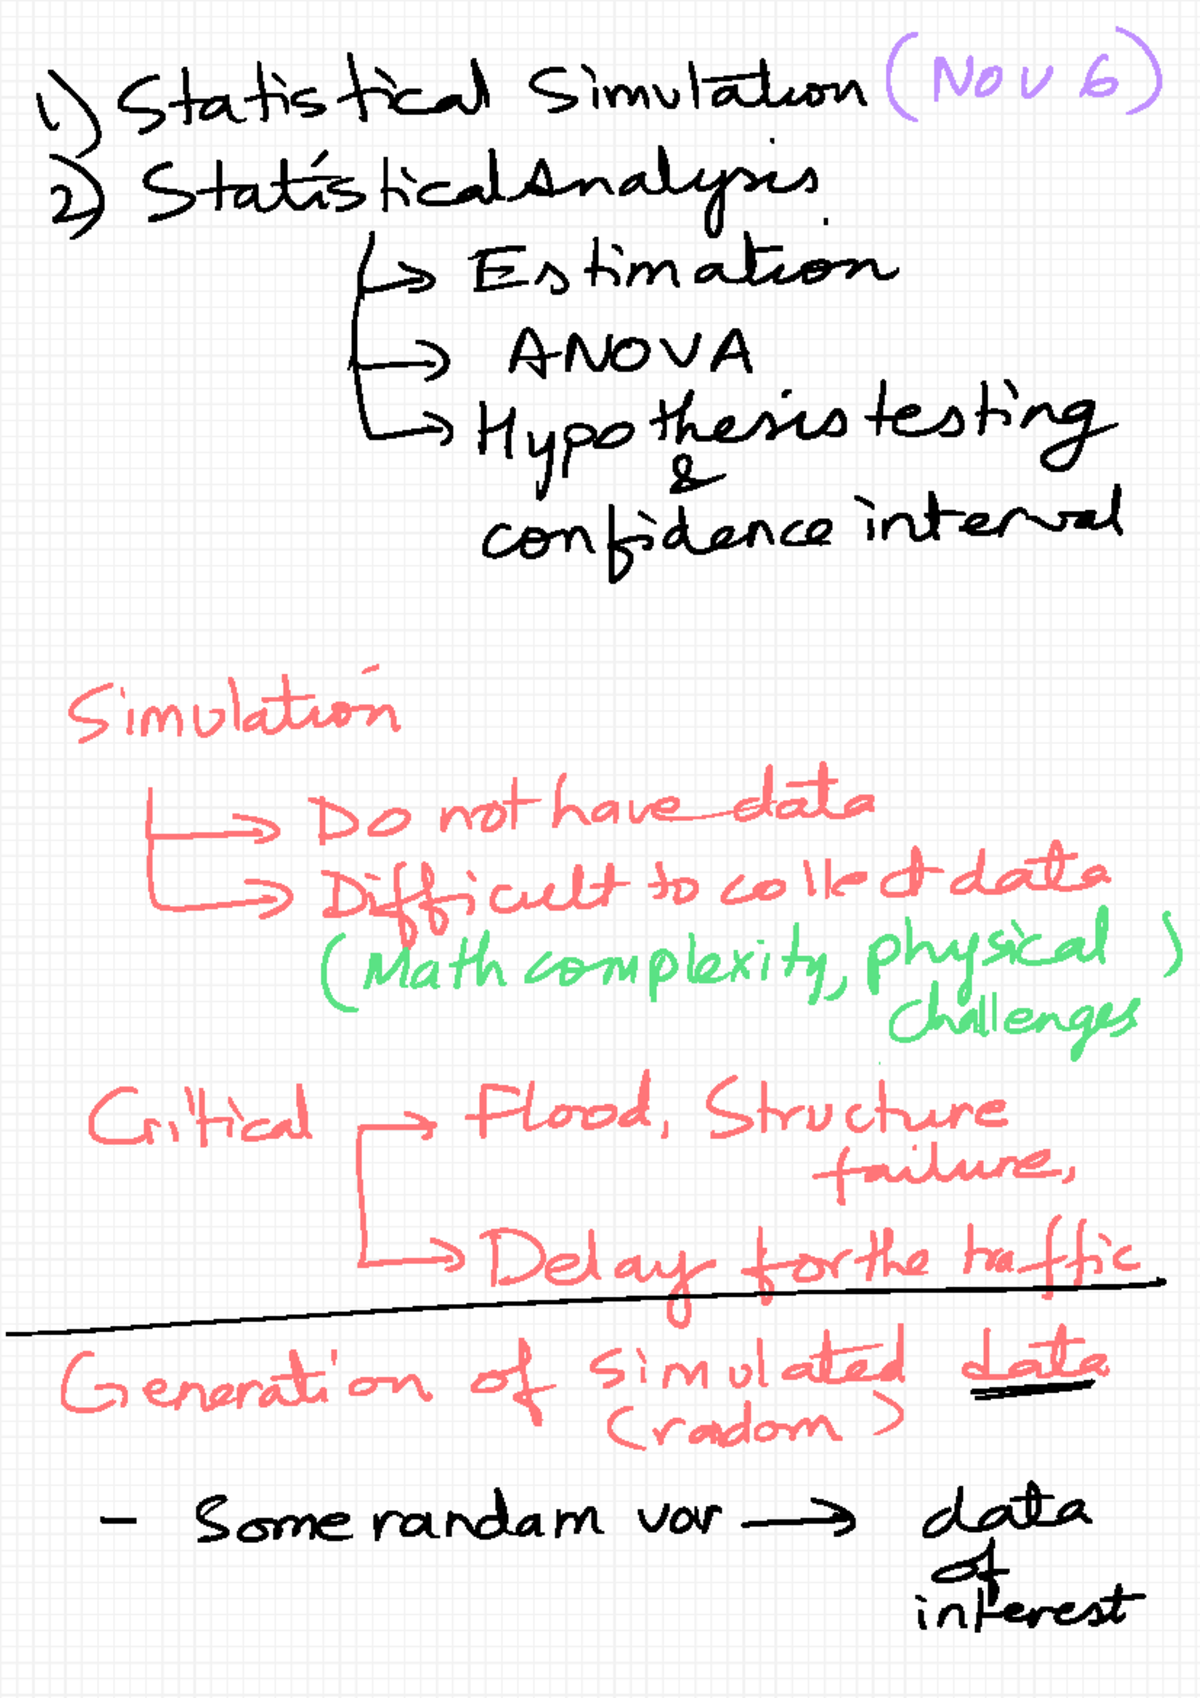 1) Statistical Simulation (Nov 6)
2) Statistical Analysis
→ Estimation
→ ANOVA
→ Hypothesis testing
&
confidence interval
Simulation
→ Do not have data
→ Difficult to collect data
(Math complexity, physical)
challenges
Critical → Flood, Structure
failure,
→ Delay for the traffic
Generation of simulated data
(radom)
- Some randam var → data
of
interest